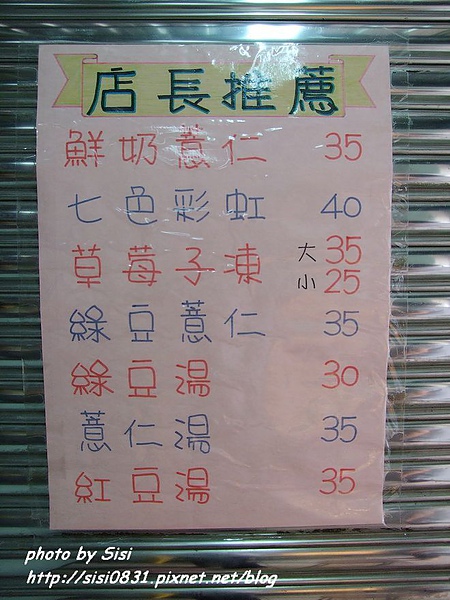 店長推薦
鮮奶薏仁 35
七色彩虹 40
草莓子凍 大35
小25
綠豆薏仁 35
綠豆湯 30
薏仁湯 35
紅豆湯 35
photo by Sisi
http://sisi0831.pixnet.net/blog